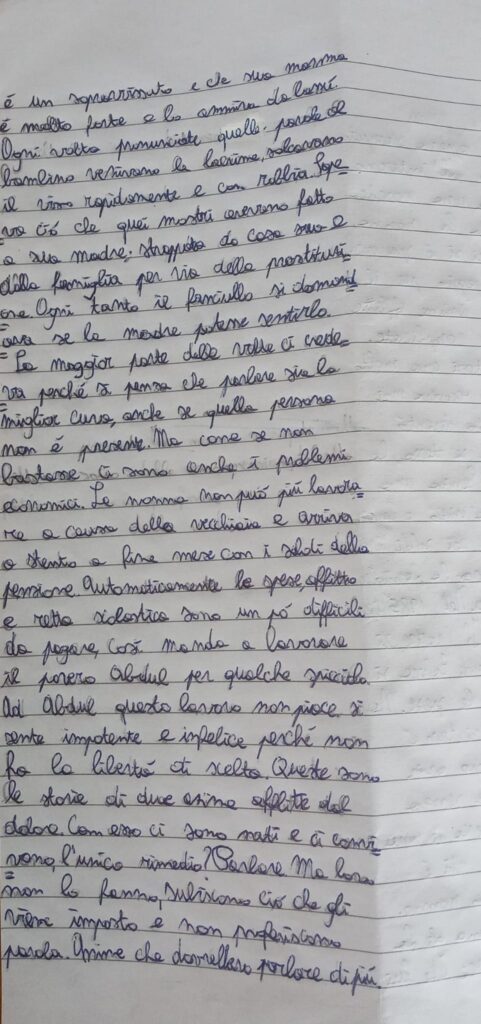 é un sopravvissuto e che sua mamma
é molto forte e lo ammira da lassì.
Ogni volta pronunciate quelle parole al
bambino venivano le lacrime, solcavano
il viso rapidamente e con rabbia. Sape
va ció che quei mostri avevano fatto
a sua madre: strappata da casa sua e
dalla famiglia per via della prostituzi=
one. Ogni tanto il fanciullo si domand
=ava se la madre potesse sentirlo.
=La maggior parte delle volte ci crede=
va perché si pensa che parlare sia la
miglior cura, anche se quella persona
non é presente. Ma come se non
bastasse ci sono anche i problemi
economici. Le nonna non puó piú lavora=
re a causa della vecchiaia e arriva
a stento a fine mese con i soldi della
pensione. Automaticamente le spese, affitto
e retta scolastica sono un pó difficili
da pagare, cosí manda a lavorare
il povero Abdul per qualche spicciolo.
Ad Abdul questo lavoro non piace, si
sente impotente e infelice perché non
ha la libertá di scelta. Queste sono
le storie di due anime afflitte dal
dolore. Con esso ci sono nati e ci convi=
vono, l'unico rimedio? Parlare. Ma loro
non lo fanno, subiscono ció che gli
viene imposto e non proferiscono
parola. Anime che dovrebbero parlare di piú.